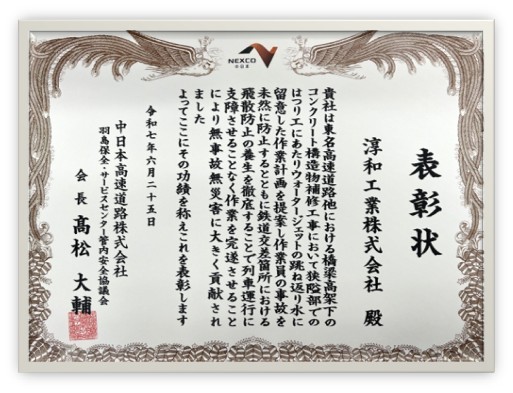 NEXCO
中日本
表彰状
淳和工業株式会社 殿
貴社は東名高速道路他における橋梁高架下の
コンクリート構造物補修工事において狭隘部での
はつり工にあたりウォータージェットの跳ね返り水に
留意した作業計画を提案し作業員の事故を
未然に防止するとともに鉄道交差箇所における
飛散防止の養生を徹底することで列車運行に
支障させることなく作業を完遂させること
により無事故無災害に大きく貢献され
ました
よってここにその功績を称えこれを表彰します
令和七年六月二十五日
中日本高速道路株式会社
羽島保全・サービスセンター管内安全協議会
会長 髙松 大輔